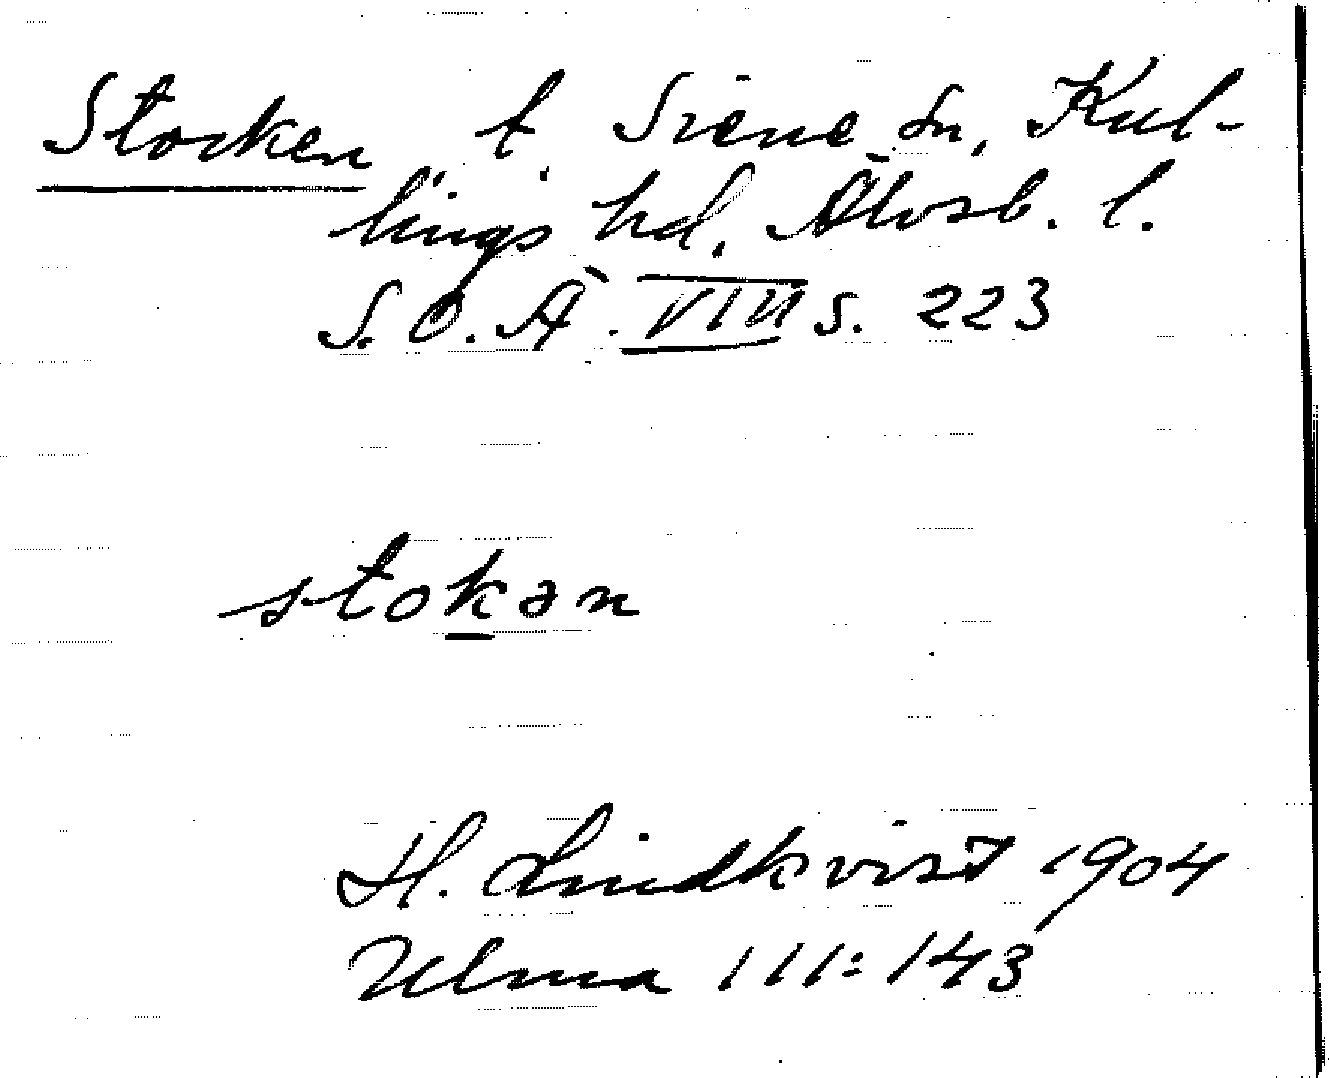 Stocken t. Siene sn, Kul-
lings hd. Älvsb. l.
S.O.Ä. VIII s. 223
stokən
H. Lindkvist 1904
Ulma 111:143